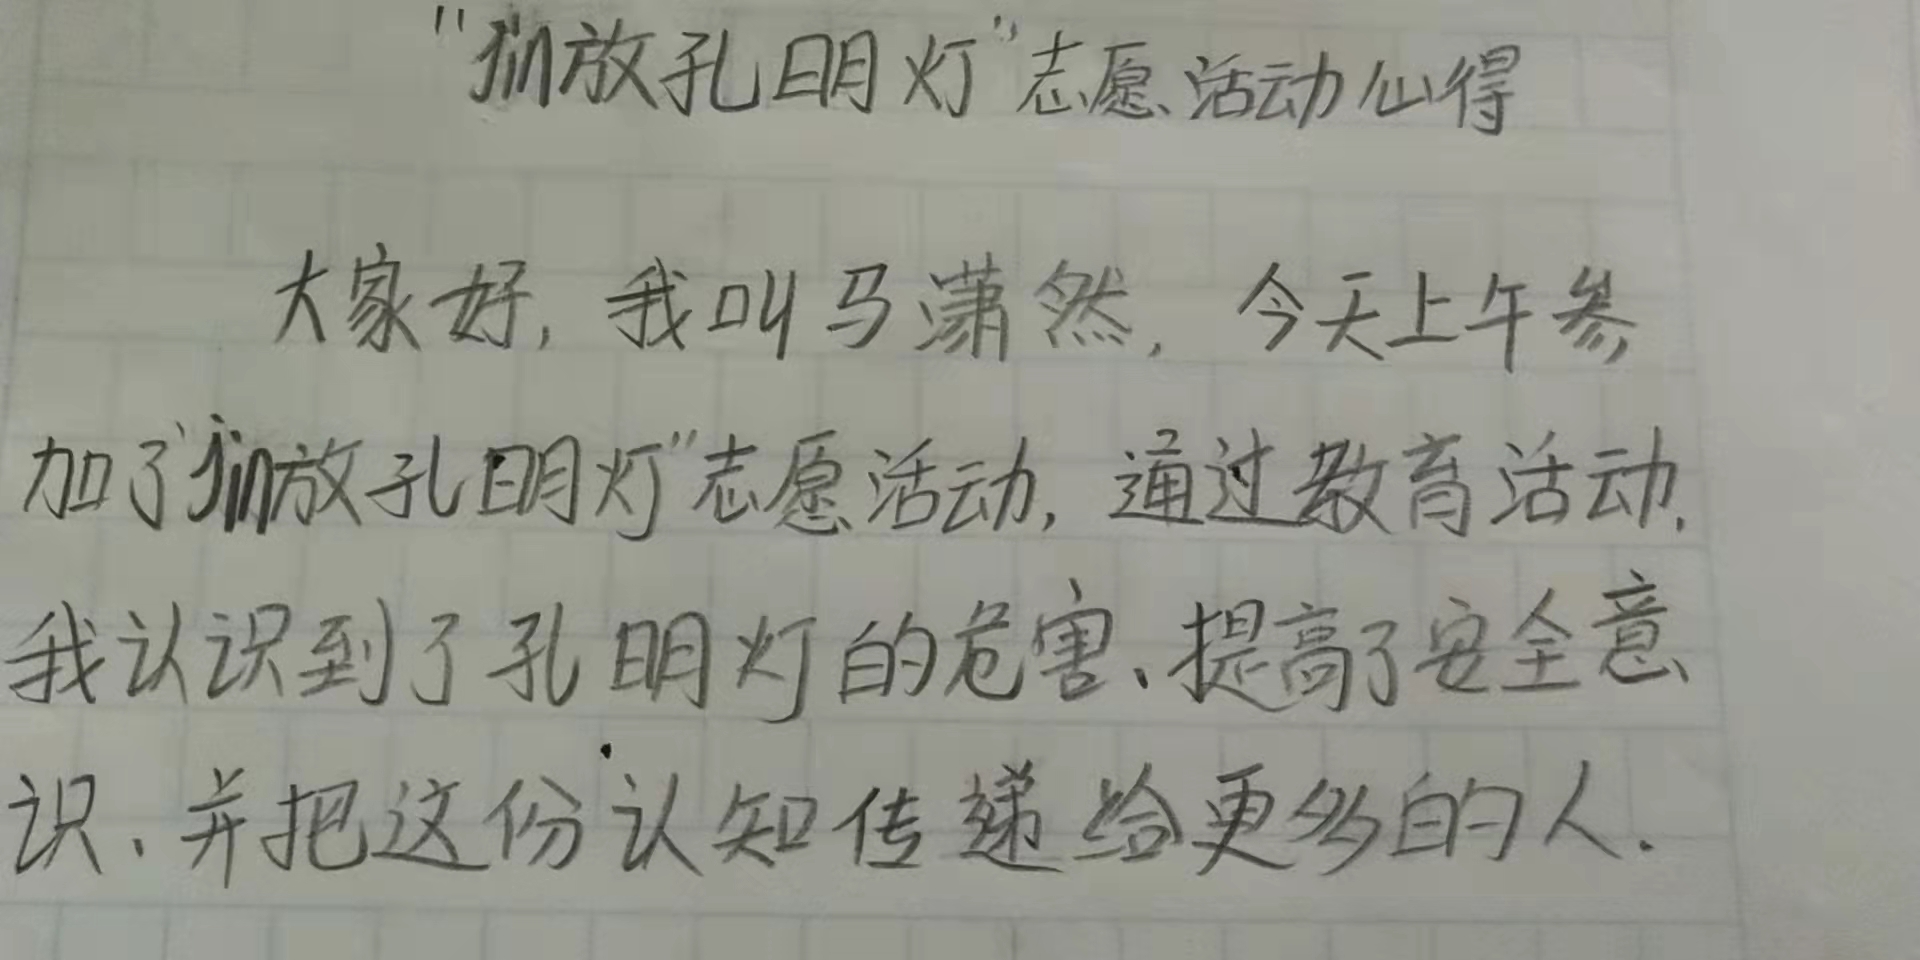 "放孔明灯"志愿活动心得
大家好，我叫马潇然，今天上午参
加了"放孔明灯"志愿活动，通过教育活动，
我认识到了孔明灯的危害、提高了安全意
识、并把这份认知传递给更多的人.